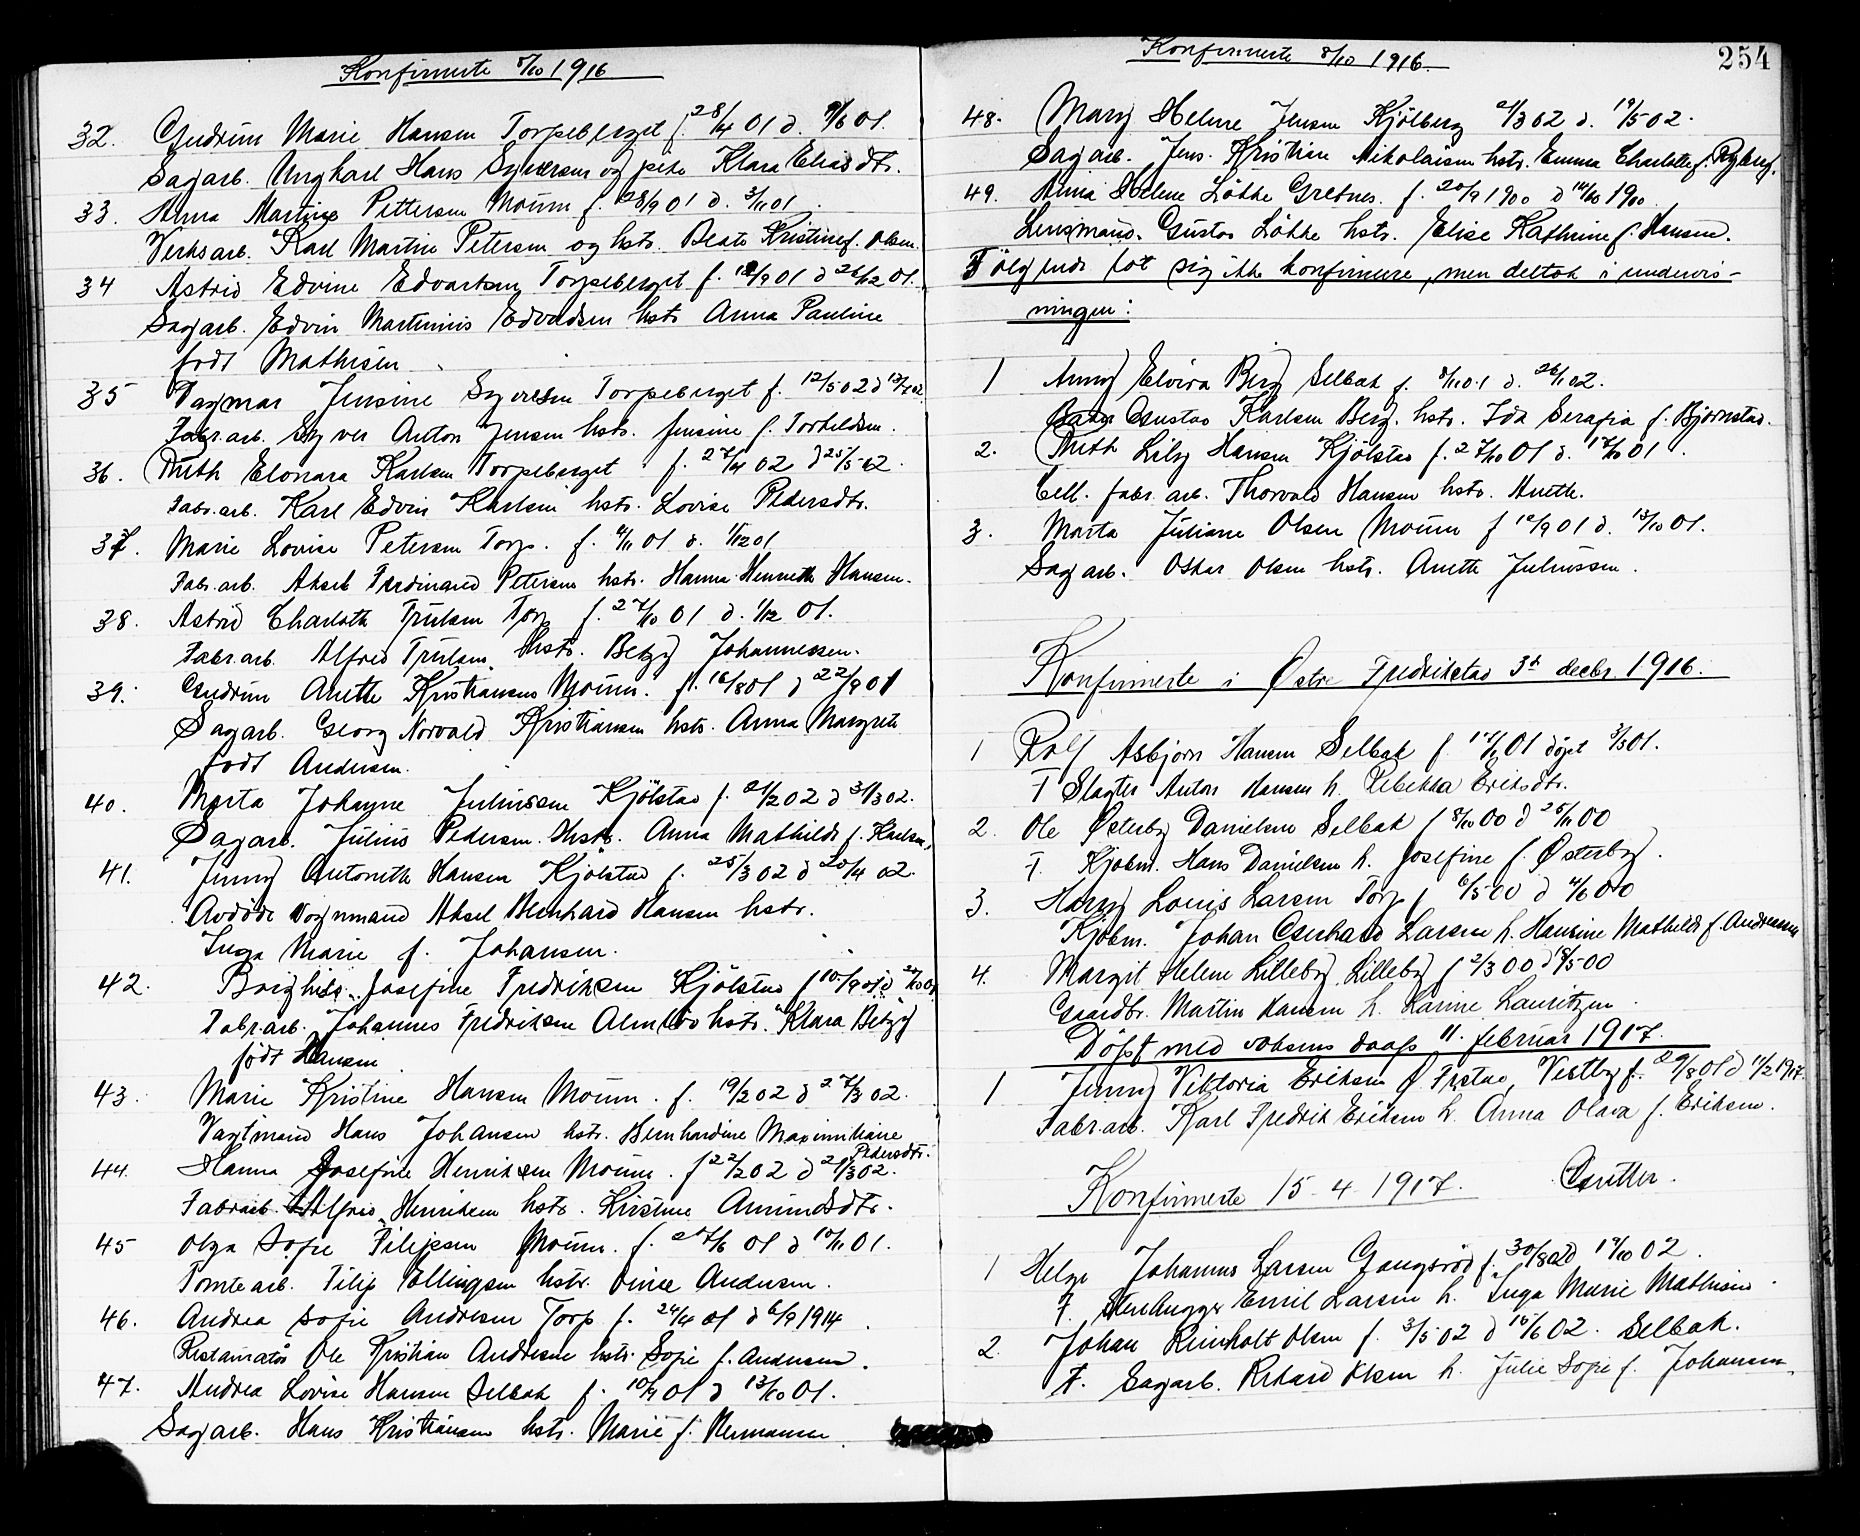 Konfirmerte 8/10 1916
32. Gudrun Marie Hansen Torpeberget f. 28/4 01 d. 9/6 01.
Sagarb. Ungkarl Hans Syversen og pike Klara Eliasdtr.
33. Anna Martine Pettersen Moum f. 28/9 01 d. 3/11 01.
Verksarb. Karl Martin Petersen og hstr. Beate Kristine f. Olsen.
34 Astrid Edvine Edvartsen Torpeberget f. 12/9 01 d 26/12 01.
Sagarb. Edvin Martinius Edvardsen hstr Anna Pauline
født Mathisen
35 Dagmar Jensine Syversen Torpeberget f. 12/5 02 d 13/7 02
Fabr.arb. Syver Anton Jensen hstr. Jensine f. Torkeldsen.
36. Ruth Elonara Karlsen Torpeberget f. 27/4 02 d 25/5 02.
Fabr.arb. Karl Edvin Karlsen hstr. Lovise Pedersdtr.
37. Marie Lovise Petersen Torp. f. 4/11 01 d. 1/12 01
Fabr.arb. Aksel Ferdinand Petersen hstr. Hanna Henriette Hansen.
38. Astrid Charlotte Trulsen Torp f. 27/10 01 d. 1/12 01.
Fabr.arb. Alfred Trulsen hstr. Betzy Johannessen.
39. Gudrun Anette Kristiansen Moum. f. 16/8 01 d 22/9 01
Sagarb. Georg Norvald Kristiansen hstr. Anna Margrete
født Andersen.
40. Marta Johanne Juliussen Kjölstad f. 21/2 02 d 31/3 02.
Sagarb. Julius Pedersen hstr. Anna Mathilde f. Karlsen,
41. Jenny Antonette Hansen Kjölstad f. 25/3 02 d 20/4 02.
Avdöde Vognmand Aksel Bernhard Hansen hstr.
Inga Marie f. Johansen.
42. Borghild Josefine Fredriksen Kjölstad f 10/9 01 d 27/10 01
Fabr.arb. Johannes Fredriksen hstr. Klara Betzy
født Hansen
43. Marie Kristine Hansen Moum. f. 19/2 02 d 27/3 02.
Vagtmand Hans Johansen hstr. Bernhardine Maximiliane
Pedersdtr.
44. Hanna Josefine Henriksen Moum. f 22/2 02 d 21/3 02.
Fabrarb. Alfred Henriksen hstr. Kristine Amundsdtr.
45 Olga Sofie Filipsen Moum. f. 27/6 01 d 10/11 01.
Tomtearb. Filip Ellingsen hstr. Andersen.
46. Andrea Sofie Andresen Torp. f. 24/4 01 d 6/9 1914
Restauratör Ole Kristian Andresen hstr. Sofie f. Andersen.
47. Andrea Lovise Hansen Selbak f. 10/9 01 d 13/10 01.
Sagarb. Hans Kristiansen hstr. Marie f. Hermansen.
Konfirmerte 8/10 1916.
254
48. Mary Helene Jensen Kjölberg 21/3 02 d. 19/5 02.
Sagarb. Jens Kristian Nikolaisen hstr. Emma Charlotte f. Ryberg.
49. Anna Helene Lökke Gretnes. f. 20/9 1900 d 14/10 1900.
Lensmand Gustav Lökke hstr. Elise Kathrine f. Hansen.
Fölgende lot sig ikke konfirmere, men deltok i undervis-
ningen:
1 Anny Elvira Berg Selbak f. 8/11 01 d. 26/1 02.
Baker Gustav Karlsen Berg. hstr. Ida Serafia f. Björnstad.
2. Ruth Lily Hansen Kjölstad f. 27/10 01 d. 17/11 01.
Cell. fabr. arb. Thorvald Hansen hstr. Anette.
3. Marta Juliane Olsen Moum f 10/9 01 d. 13/10 01.
Sagarb. Oskar Olsen hstr. Anette Juliussen.
Konfirmerte i Østre Fredrikstad 3de decbr. 1916.
1 Rolf Asbjørn Hansen Selbak f. 17/1 01 döpt 3/3 01.
F Slagter Anton Hansen h. Rebekka Eriksdtr.
2. Ole Østerby Danielsen Selbak f 8/10 00 d 25/11 00
F. Kjøbm. Hans Danielsen h. Josefine f. Østerby.
3. Harry Louis Larsen Torp f 6/5 00 d 4/6 00
Kjöbm. Johan Gerhard Larsen h. Hansine Mathilde f. Andreassen
4. Margit Helene Lilleby, Lilleby f 2/3 00 d 6/5 00
Gaardbr. Martin Hansen h. Karine Lauritzen.
Döpt med voksens daap 11. februar 1917.
1 Jenny Viktoria Eriksen Ø Frstad, Vestby f. 29/8 01 d 11/2 1917.
Fabr.arb. Karl Fredrik Eriksen h. Anna Olava f. Eriksen.
Konfirmerte 15-4 1917. Gutter.
1 Helge Johannes Larsen Gangsröd f. 30/8 02 d 17/10 02.
F. Stenhugger Emil Larsen h. Inga Marie Mathisen.
2. Johan Reinholt Olsen f. 3/5 02 d 15/6 02. Selbak.
F. Sagarb. Rikard Olsen h. Julie Sofie f. Johansen.